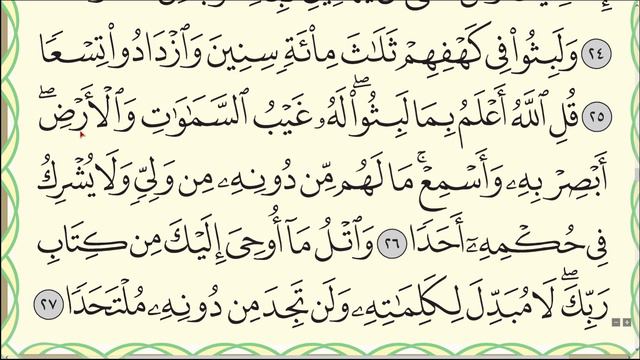 ٢٤ وَلَبِثُوا۟ فِى كَهْفِهِمْ ثَلَٰثَ مِا۟ئَةٍ سِنِينَ وَٱزْدَادُوا۟ تِسْعًا
٢٥ قُلِ ٱللَّهُ أَعْلَمُ بِمَا لَبِثُوا۟ۖ لَهُۥ غَيْبُ ٱلسَّمَٰوَٰتِ وَٱلْأَرْضِۖ
أَبْصِرْ بِهِۦ وَأَسْمِعْۚ مَا لَهُم مِّن دُونِهِۦ مِن وَلِىٍّ وَلَا يُشْرِكُ
فِى حُكْمِهِۦٓ أَحَدًا ٢٦ وَٱتْلُ مَآ أُوحِىَ إِلَيْكَ مِن كِتَابِ
رَبِّكَۖ لَا مُبَدِّلَ لِكَلِمَٰتِهِۦ وَلَن تَجِدَ مِن دُونِهِۦ مُلْتَحَدًا ٢٧